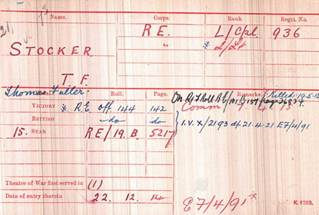 Name. Corps. Rank. Regtl. No.
STOCKER R.E. L/Cpl 936
T. F.
Thomas Fuller.
Roll. Page. Remarks
VICTORY R.E. off 144 142
BRITISH do do
15. STAR RE/19.B. 5217
I.V.X/2193 d/ 21-4-21 E7/4/91
Theatre of War first served in (1)
Date of entry therein 22. 12. 14
E7/4/91
K. 1380.